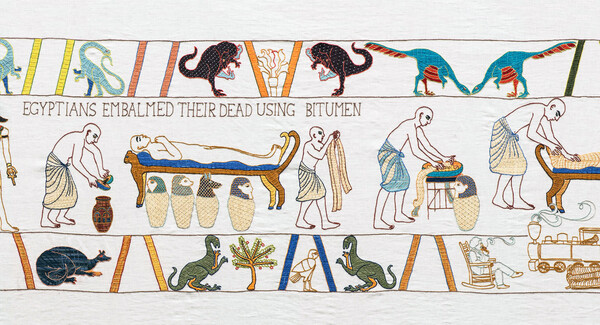 EGYPTIANS EMBALMED THEIR DEAD USING BITUMEN